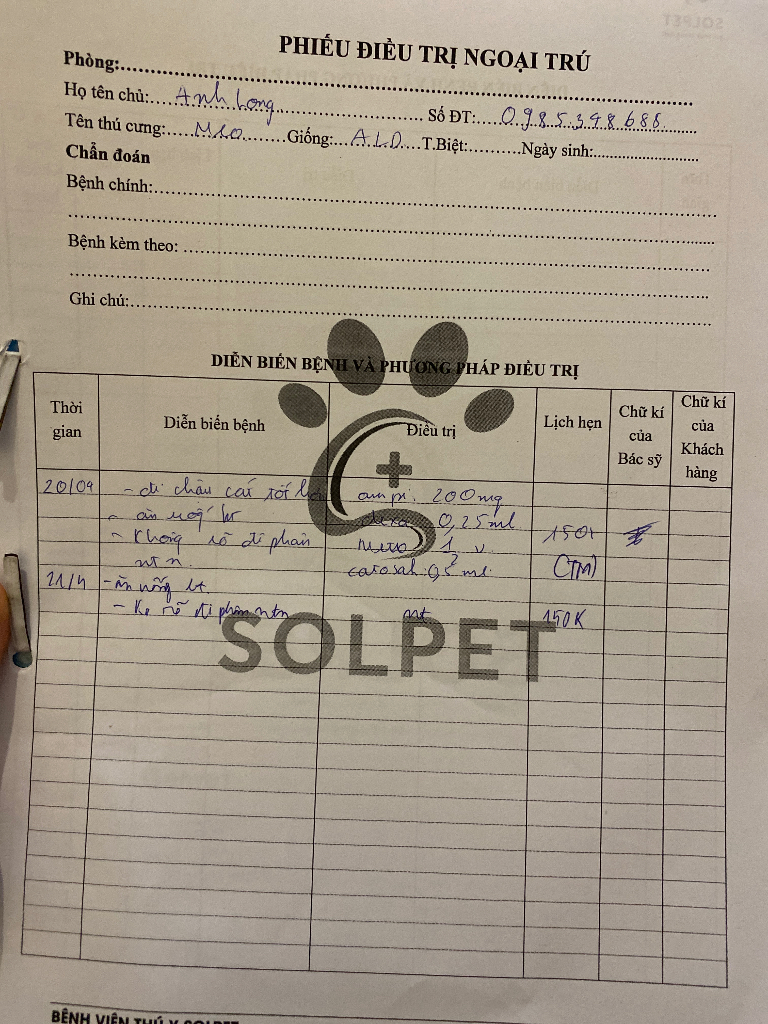 SOLPET
PHIẾU ĐIỀU TRỊ NGOẠI TRÚ
Phòng:
Họ tên chủ: Anh Long Số ĐT: 0985398688
Tên thú cưng: Meo Giống: ALD T.Biệt: Ngày sinh:
Chẩn đoán
Bệnh chính:
Bệnh kèm theo:
Ghi chú:
DIỄN BIẾN BỆNH VÀ PHƯƠNG PHÁP ĐIỀU TRỊ
Thời gian Diễn biến bệnh Điều trị Lịch hẹn Chữ kí của Bác sỹ Chữ kí của Khách hàng
20/04 - đi châu cái rồi ampi. 200mg
- ăn uống bt dexa 0,25ml
- không rõ đi phân 1 v 150k
ntn. catosal: 0,5 ml (TM)
21/4 - ăn uống bt.
- Ko rõ đi phân ntn nt 150K
SOLPET
BỆNH VIỆN THÚ Y SOLPET